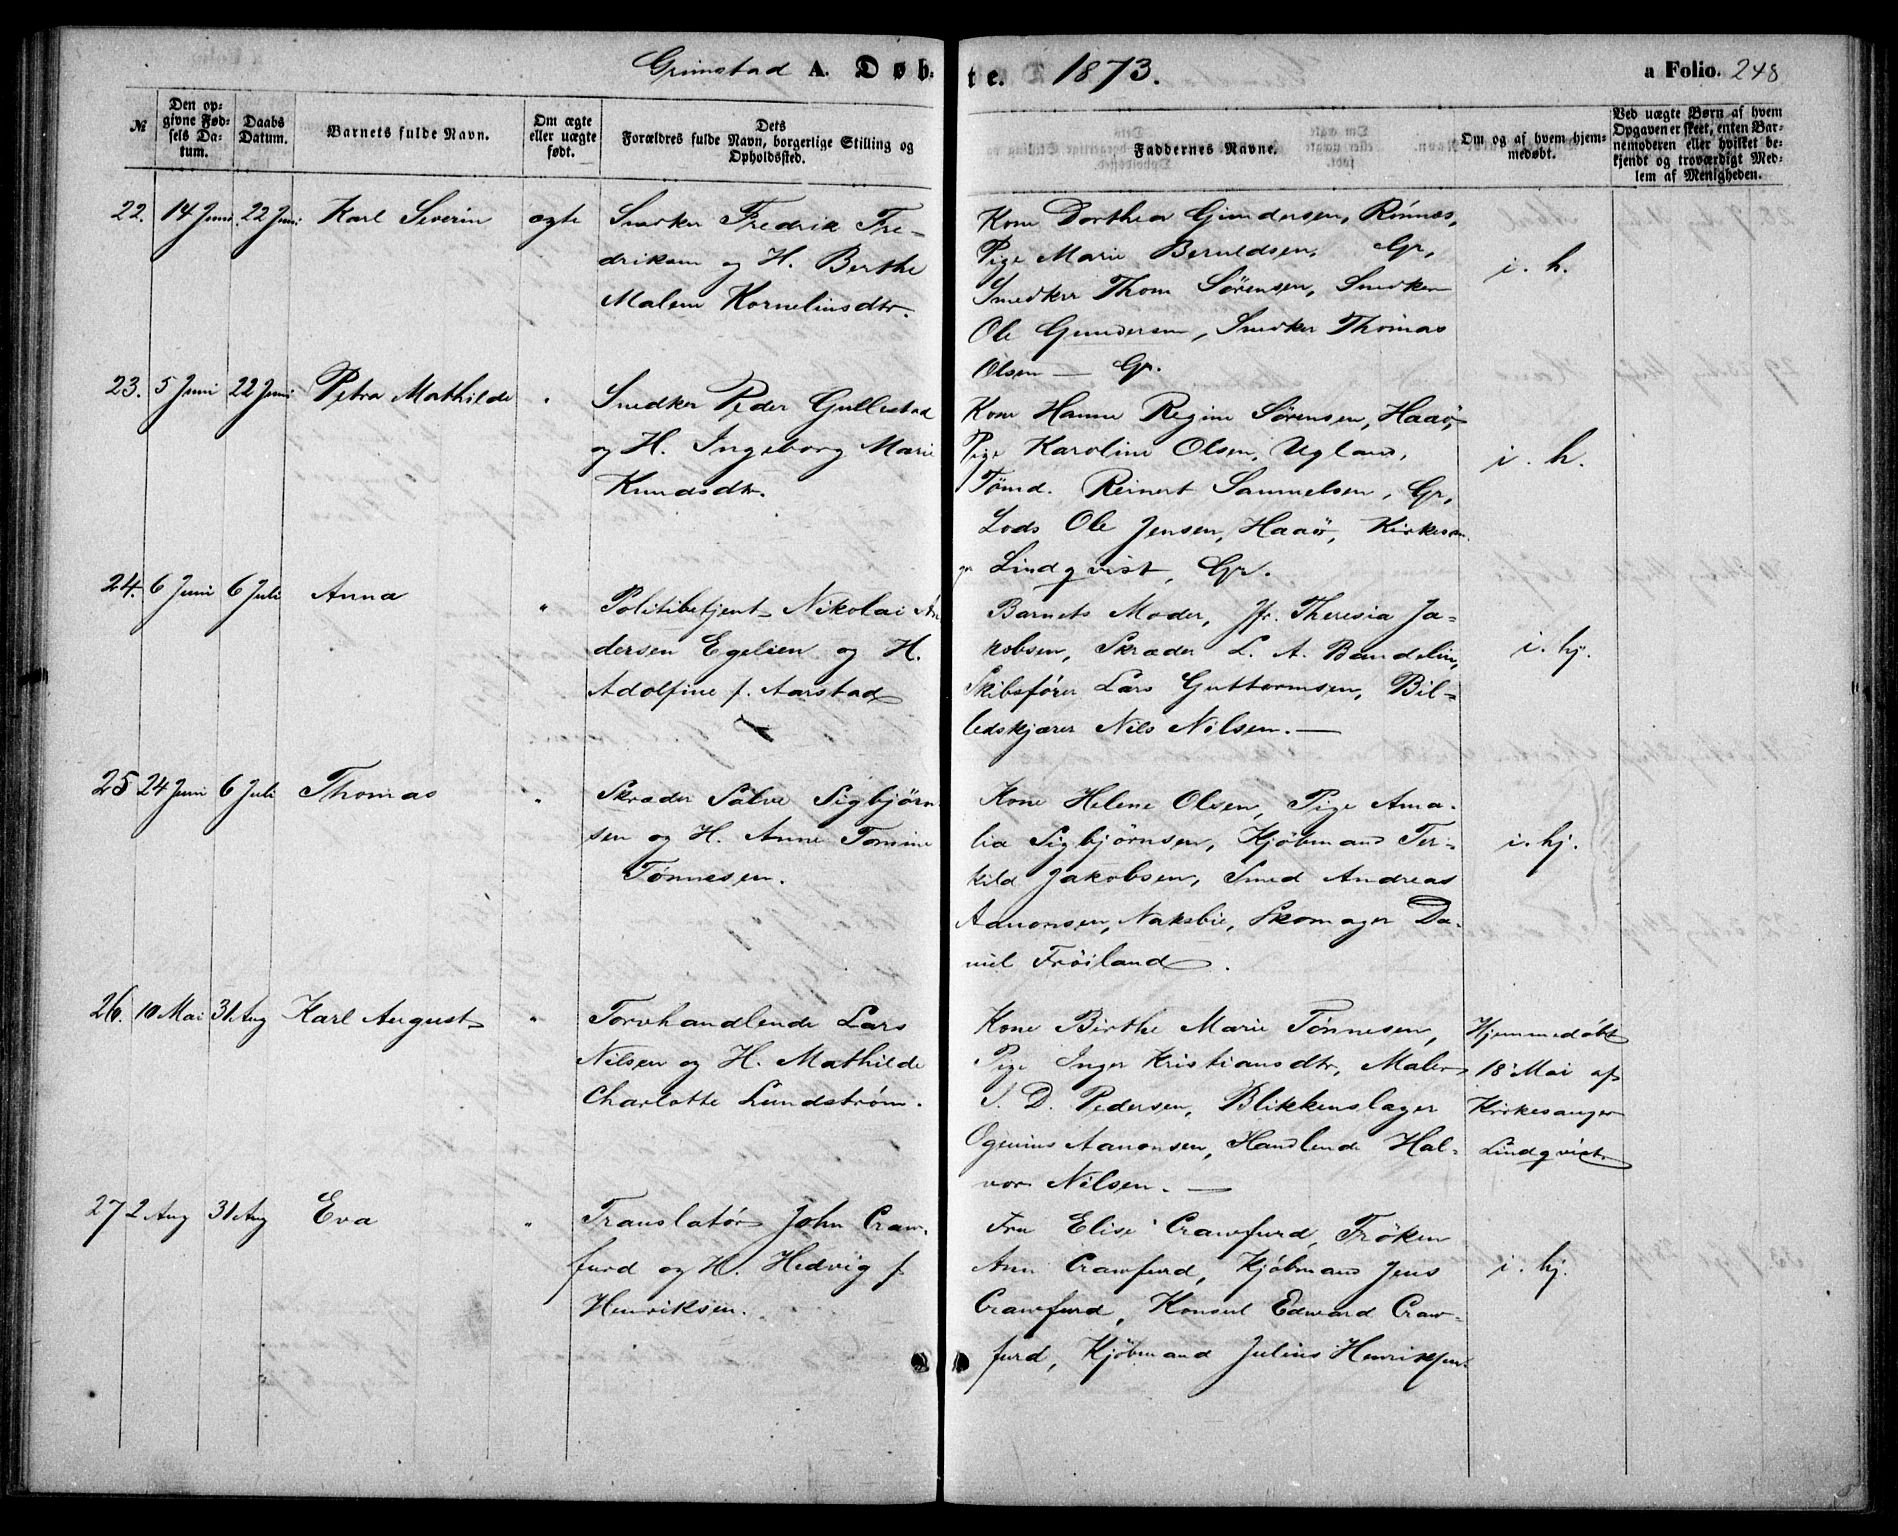 Grimstad A. Døbte. 1873. a Folio. 248
№
Den opgivne Fødsels Datum.
Daabs Datum.
Barnets fulde Navn.
Om ægte eller uægte født.
Dets Forældres fulde Navn, borgerlige Stilling og Opholdssted.
Faddernes Navne.
Om og af hvem hjemmedøbt.
Ved uægte Børn af hvem Opgaven er skeet, enten Barnemoderen eller hvilket bekjendt og troværdigt Medlem af Menigheden.
22. 14 Juni 22 Juni Karl Severin ægte
Snedker Fredrik Fre-
driksen og H. Berthe
Malene Korneliusdtr.
Kone Dorthea Gundersen, Rønnes,
Pige Marie Beruldsen, Gr,
Snedker Thom Sørensen, Snedker
Ole Gundersen, Snedker Thomas
Olsen — Gr.
i. h.
23. 5 Juni 22 Juni Petra Mathilde "
Snedker Peder Gullestad
og H. Ingeborg Marie
Knudsdtr.
Kone Hanne Regine Sørensen, Haaø,
Pige Karoline Olsen, Ugland,
Tømd. Reinert Samuelsen, Gr,
Lods Ole Jensen, Haaø, Kirkesan-
ger Lindqvist, Gr.
i. h.
24. 6 Juni 6 Juli Anna "
Politibetjent Nikolai An
dersen Egelien og H.
Adolfine f. Aarstad
Barnets Moder, Jfr. Theresia Ja-
kobsen, Skræder L. A. Bandelin,
Skibsfører Lars Guttormsen, Bil-
ledskjærer Nils Nilsen. —
i. hj.
25 24 Juni 6 Juli Thomas "
Skræder Salve Sigbjørn
sen og H. Anne Tomine
Tønnesen.
Kone Helene Olsen, Pige Ama-
lia Sigbjørnsen, Kjøbmand Ter-
kild Jakobsen, Smed Andreas
Aanonsen, Naksbie, Skomager Da-
niel Frøiland.
i. hj.
26. 10 Mai 31 Aug Karl August "
Torvhandlende Lars
Nilsen og H. Mathilde
Charlotte Lundstrøm.
Kone Birthe Marie Tønnesen,
Pige Inger Kristiansdtr, Maler
J. D. Pedersen, Blikkenslager
Ogenius Aanonsen, Handlende Hal-
vor Nilsen. —
Hjemmedøbt
18 Mai af
Kirkesanger
Lindqvist
27 2 Aug 31 Aug Eva "
Translatør John Craw-
furd og H. Hedvig f.
Henriksen.
Fru Elise Crawfurd, Frøken
Ann Crawfurd, Kjøbmand Jens
Crawfurd, Konsul Edward Craw-
furd, Kjøbmand Julius Henriksen.
i. hj.